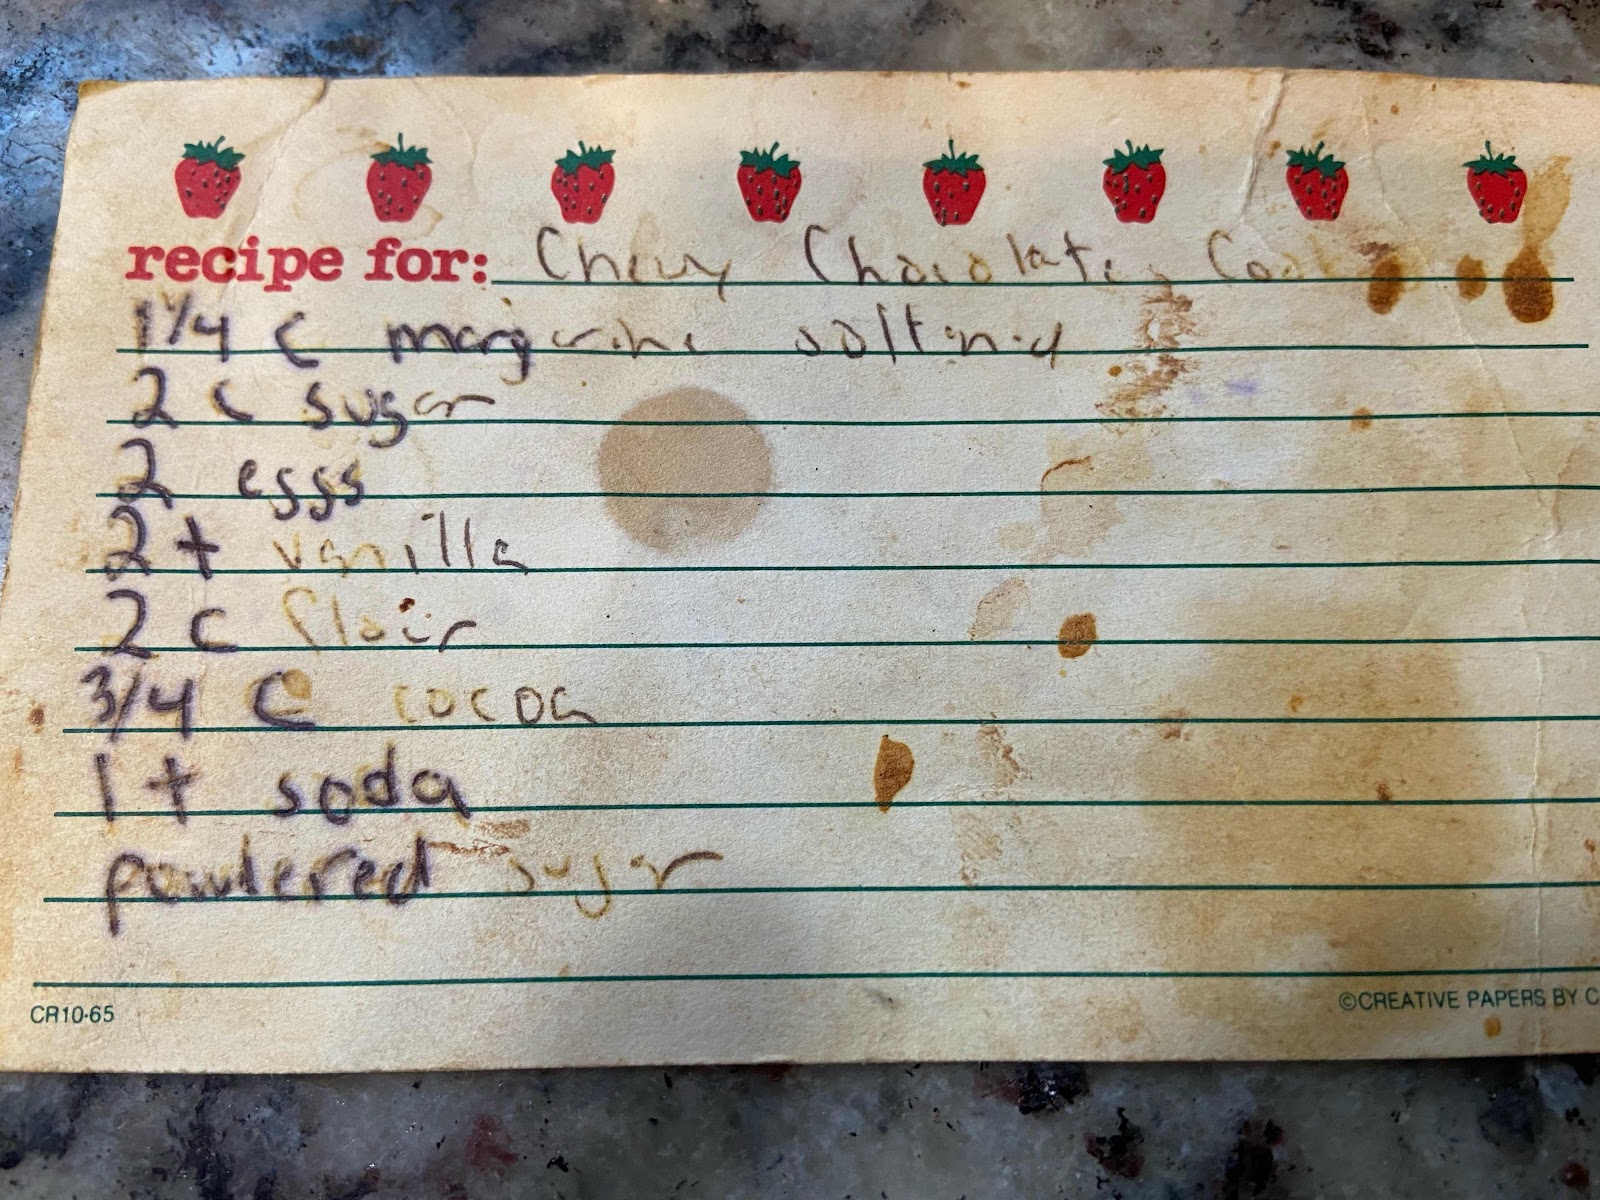 recipe for: Chewy Chocolate
1 1/4 c margarine softined
2 c sugar
2 eggs
2 t vanilla
2 c flour
3/4 c cocoa
1 t soda
powdered sugar
CR10-65
©CREATIVE PAPERS BY C